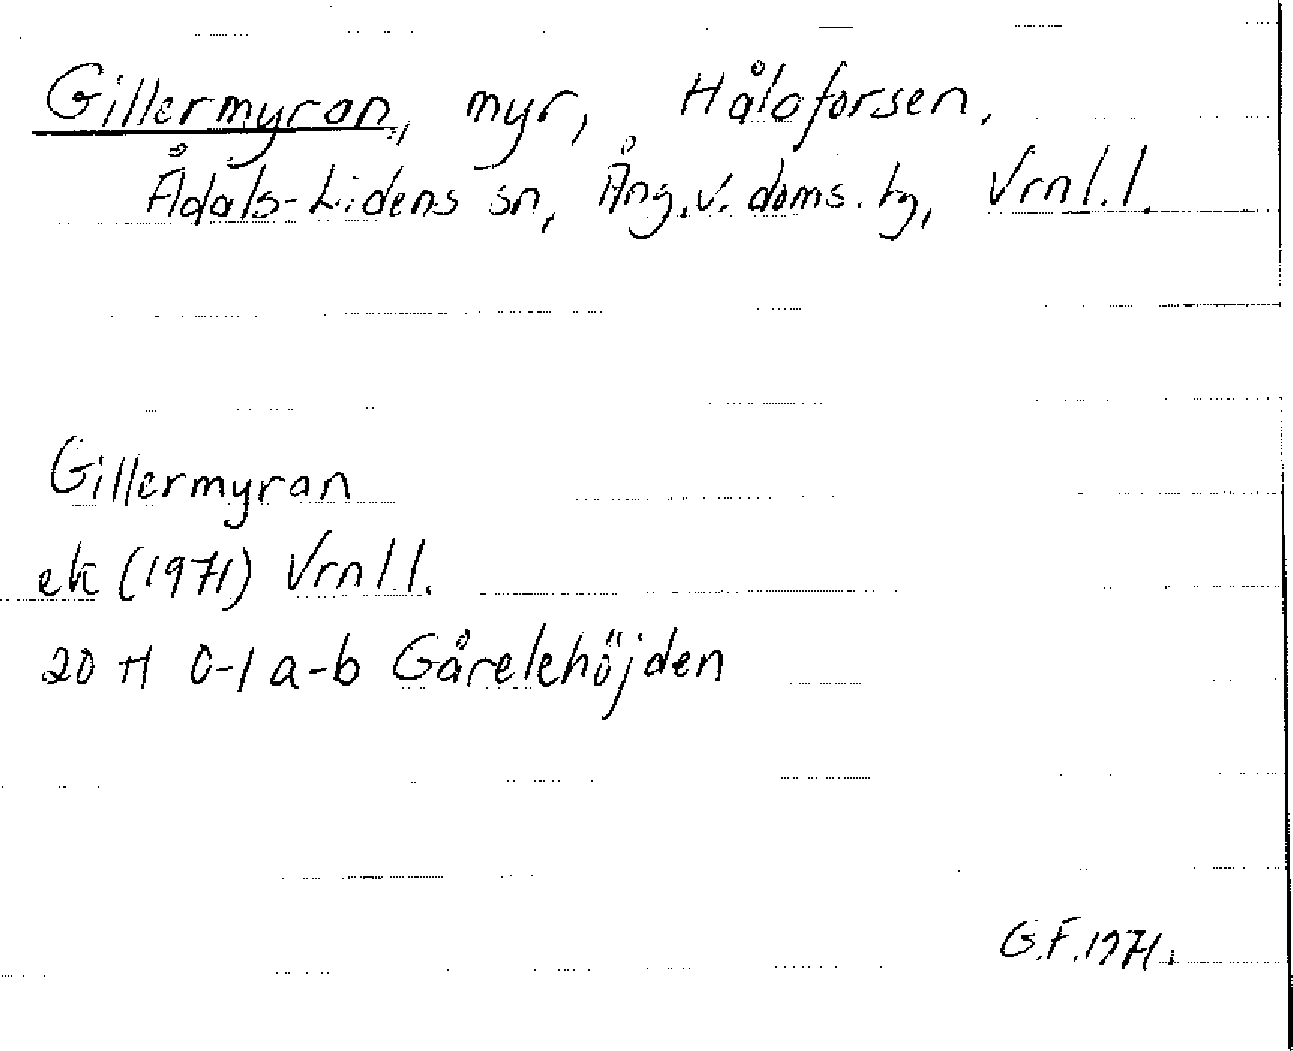 Gillermyran, myr, Håloforsen,
Ådals-Lidens sn, Ång.v.doms.hg, Vrnl.l.
Gillermyran
ek (1971) Vrnl.l.
20 H 0-1 a-b Gårelehöjden
G.F.1971.